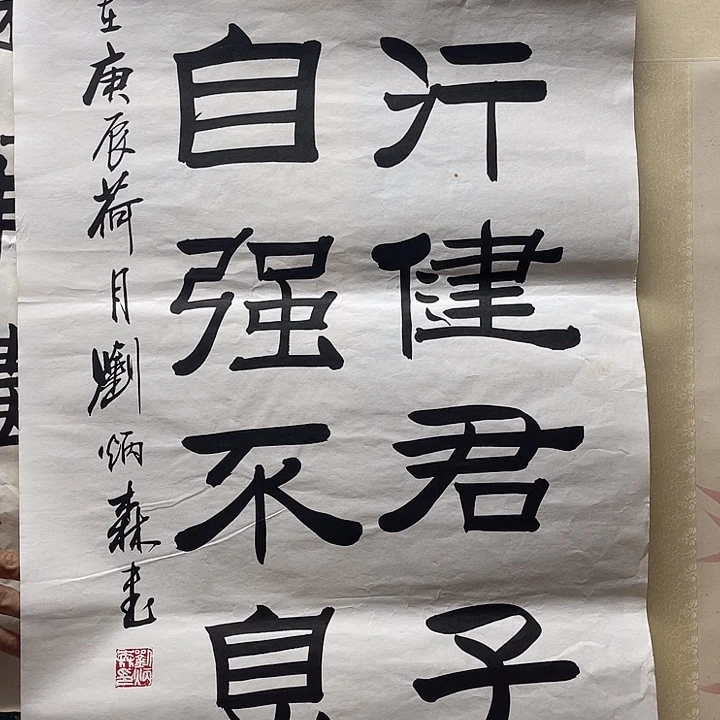 行健君子
自强不息
在庚辰荷月劉炳森書
劉炳森印